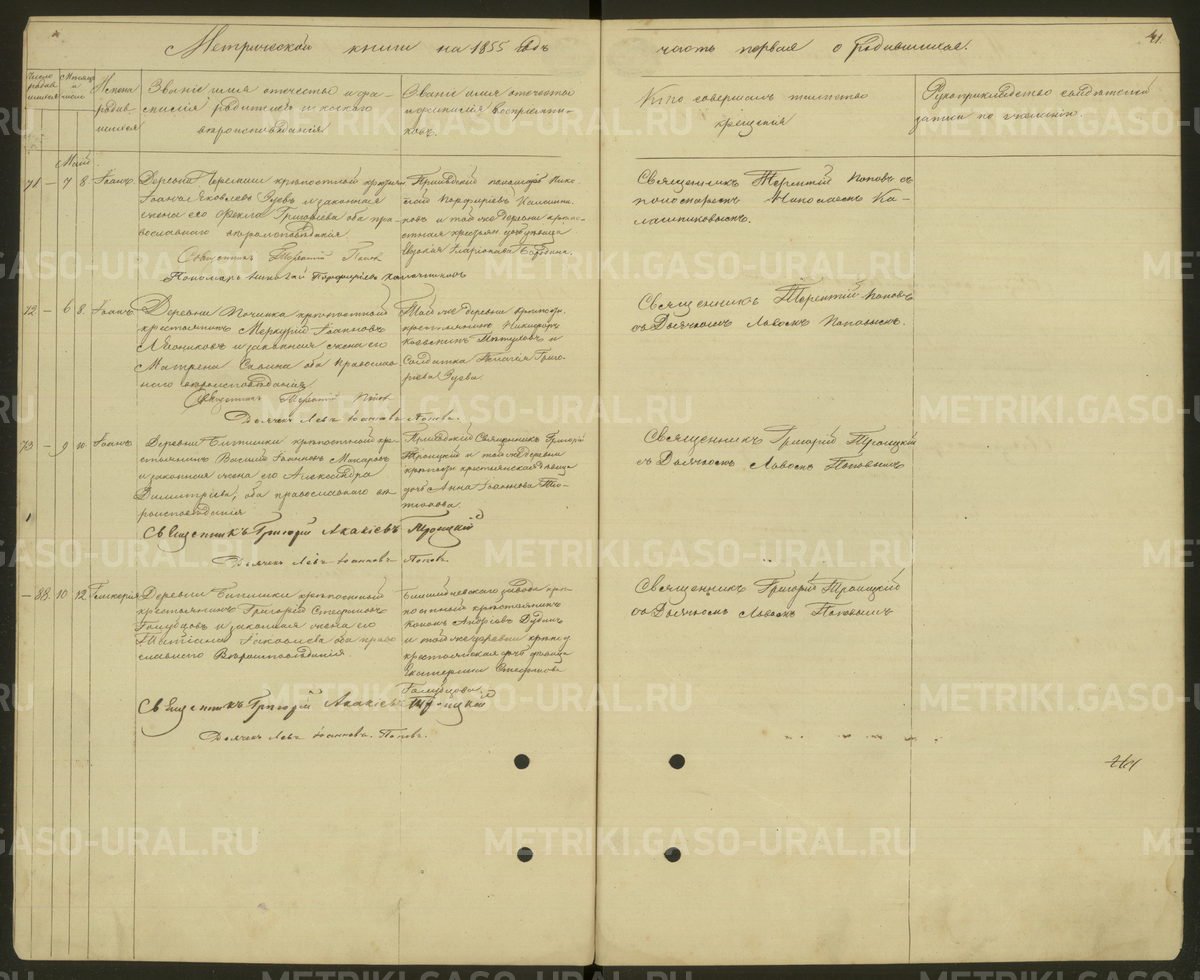 Метрической книги на 1855 годъ
часть первая о родившихся.
41.
Число родившихся
Мѣсяцъ и число
Имена родившихся
Званіе имя отечество и фамилія родителей и какого вѣроисповѣданія
Званіе имя отечество и фамилія воспріемниковъ.
Кто совершалъ таинство крещенія
Рукоприкладство свидѣтелей записи по желанію.
Май.
71 – 7 8. Іоаннъ.
Деревни крѣпостный крестьян.
Іоаннъ Яковлевъ Зуевъ и законная
жена его Фекла Григорьева оба пра-
вославнаго вѣроисповѣданія
Священникъ Терентій Попов
Пономарь Николай Порфирьевъ Калашников
Приходскій пономарь Нико-
лай Порфирьевъ Калашни-
ковъ и той же деревни крѣпо-
стная крестьян. дочь дѣвица
Иларіонова Бородина.
Священникъ Терентій Поповъ съ
пономаремъ Николаемъ Ка-
лашниковымъ.
72 – 6 8. Іоаннъ.
Деревни Починка крѣпостный
крестьянинъ Меркурій Іоанновъ
и законная жена его
Матрена Савина оба православ-
наго вѣроисповѣданія
Священникъ Терентій Попов
Дьячекъ Левъ Іоанновъ Поповъ.
Той же деревни крѣпостн.
крестьянинъ Никифоръ
и
Солдатка Пелагія Григо-
рьева Зуева.
Священникъ Терентій Поповъ
съ Дьячкомъ Львомъ Поповымъ.
73 – 9 10. Іоаннъ
Деревни Битимки крѣпостный кре-
стьянинъ Василій Іоанновъ Макаровъ
и законная жена его Александра
Димитріева, оба православнаго вѣ-
роисповѣданія
Священникъ Григорій Акакіевъ Троицкій
Дьячекъ Левъ Іоанновъ Поповъ.
Приходскій Священникъ Григорій
Троицкій и той же деревни
крѣпостн. крестьянская дѣвица
дочь Анна Іоаннова
Священникъ Григорій Троицкій
съ Дьячкомъ Львомъ Поповымъ
– 88. 10 12. Гликерія
Деревни Битимки крѣпостный
крестьянинъ Григорій Стефановъ
Голубцовъ и законная жена его
Татіана Іаковлева оба право-
славнаго Вѣроисповѣданія.
Священникъ Григорій Акакіевъ Троицкій
Дьячекъ Левъ Іоанновъ Поповъ.
завода крѣ-
постный крестьянинъ
Кононъ Андреевъ Дубинъ
и той же деревни крѣпост.
крестьянская дочь дѣвица
Екатерина Стефанова
Голубцова.
Священникъ Григорій Троицкій
съ Дьячкомъ Львомъ Поповымъ
METRIKI.GASO-URAL.RU